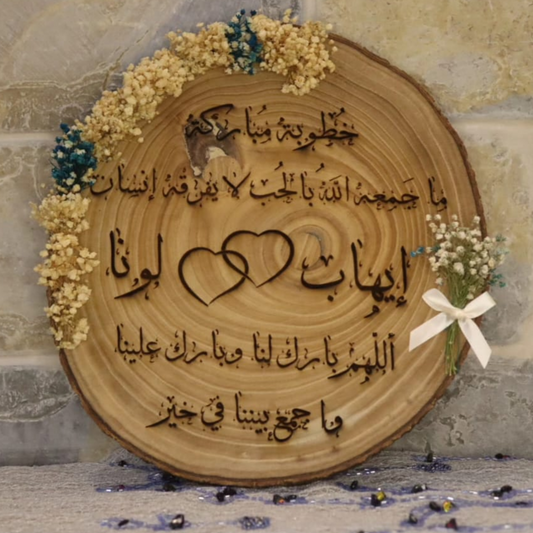 خُطُوبَة مُبَارَكَة
ما جَمِعهُ اللهُ بالحُب لا يفرقهُ إنسَان
إيهاب لونا
اللّهُمّ بارك لنا وبارك علينا
وا جمع بيننا في خير